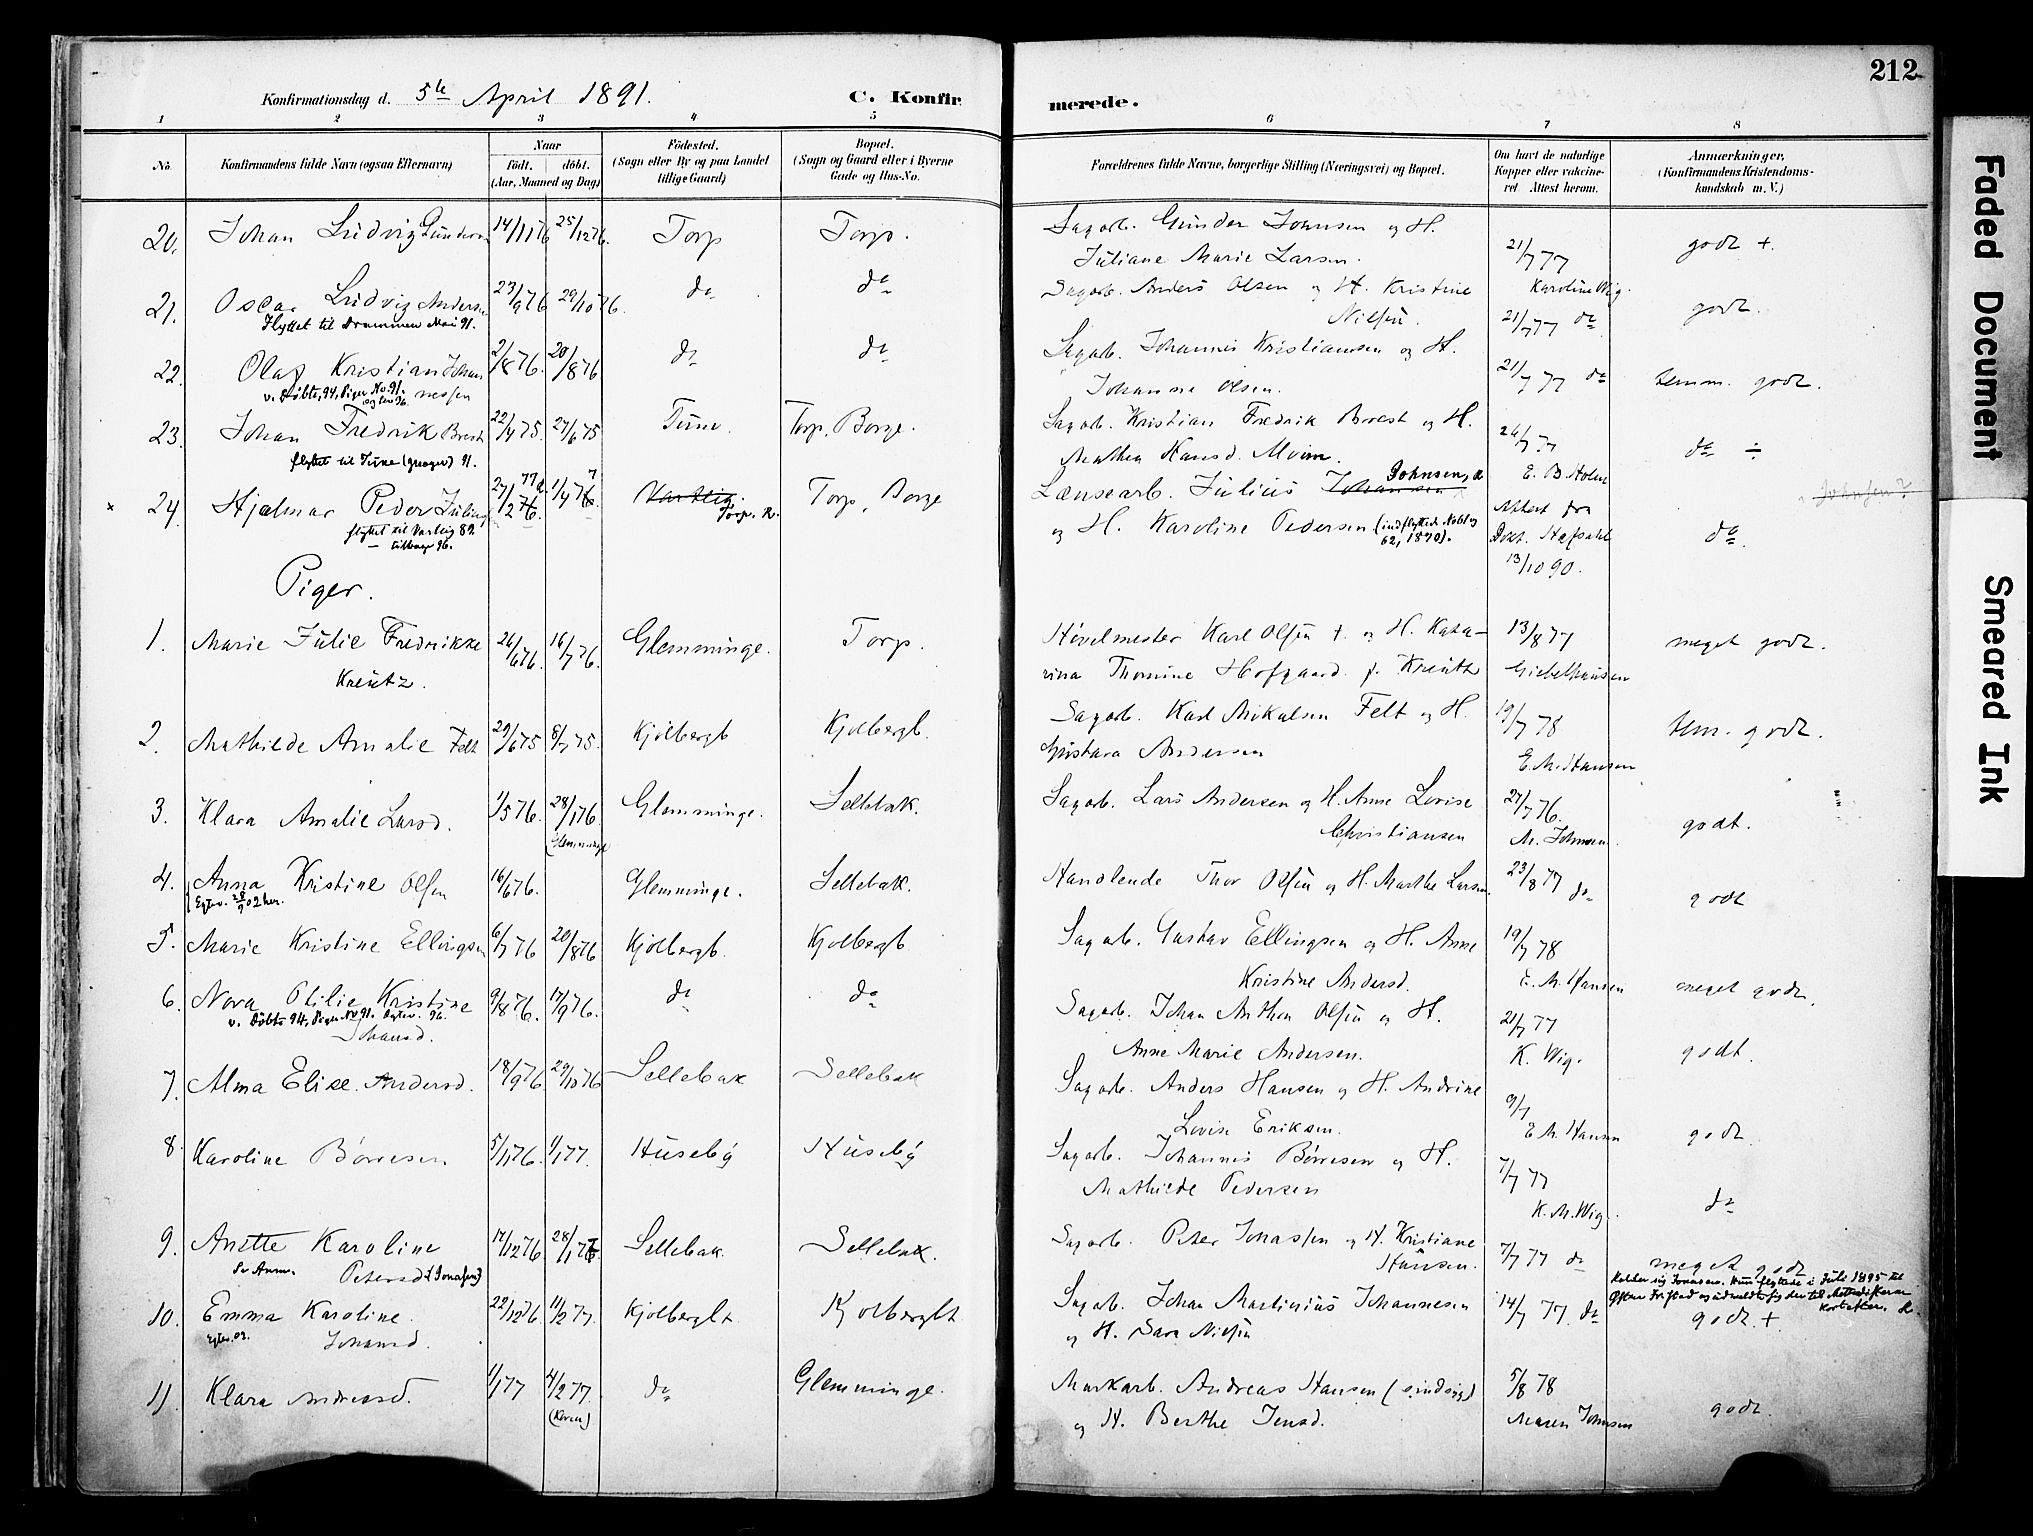 212
Konfirmationsdag d. 5te April 1891. C. Konfir merede.
1 2 3 4 5 6 7 8
No. Konfirmandens fulde Navn (ogsaa Efternavn) Naar Født. døbt. (Aar, Maaned og Dag) Fødested. (Sogn eller By og paa Landet tillige Gaard) Bopæl. (Sogn og Gaard eller i Byerne Gade og Hus-No. Forældrenes fulde Navne, borgerlige Stilling (Næringsvei) og Bopæl. Om havt de naturlige Kopper eller vaccineret. Attest herom. Anmærkninger. (Konfirmandens Kristendomskundskab m. V.)
20. Johan Ludvig Gunders 14/11 76 25/12 76. Torp Torp. Sagarb. Gunder Johnsen og H. 21/7 77 godt +
Juliane Marie Larsen. Karoline Wig.
21. Oscar Ludvig Anders 23/9 76 29/10 76. do do Sagarb. Anders Olsen og H. Kristine 21/7 77 do godt.
Flyttet til Drammen Mai 91. Nilsen.
22. Olaf Kristian Johan 2/8 76. 20/8 76 do do Sagarb. Johannis Kristiansen og H. 21/7 77 do temm. godt.
v. Døbte, 94, Piger No. 91. nessen Johanna Olsen.
23. Johan Fredrik Brest 22/4 75. 27/6 75 Tune. Torp, Borge. Sagarb. Kristian Fredrik Brest og H. 26/7 77 do ÷
flyttet til Tune (Greager) 91. Mathea Hansd. Moum. E. B. Holm
× 24. Hjalmar Peder Julius 27/12 76. 1/4 76 Varteig Torp. R. Torp, Borge Lænsearb. Julius Johansen Johnsen, R Attest fra Johnsen?
flyttet til Varteig 82. og H. Karoline Pedersen (indflyttede No 61 og 62, 1890). Dokt. Hafsahl do.
— tilbage 96. 13/10 90.
Piger.
1. Marie Julie Fredrikke 26/6 76. 16/7 76. Glemminge. Torp. Høvelmester Karl Olsen +. og H. Kata- 13/8 77 meget godt.
Kreutz. rina Thomine Hofgaard f. Kreutz Giebelhausen
2. Mathilde Amalie Felt 29/6 75 8/7 75. Kjølbergb Kjølbergb. Sagarb. Karl Mikalsen Felt og H. 19/7 78 tem. godt.
Gustava Andersen E. M. Hansen
3. Klara Amalie Larsd. 1/5 76. 28/1 76. Glemminge. Sellebak. Sagarb. Lars Andersen og H. Anne Lovise 27/7 76. godt.
(Glemminge Christiansen M. Johnsen.
4. Anna Kristine Olsen 16/6 76. Glemminge. Sellebak. Handlende Thor Olsen og H. Marthe Larsen. 23/8 77 do godt
Egtev. 28/9 02 her.
5. Marie Kristine Ellingsen 6/7 76 20/8 76 Kjølbergb. Kjølbergb Sagarb. Gustav Ellingsen og H. Anne 19/7 78
Kristine Andersd. E. M. Hansen meget godt.
6. Nora Otilie Kristine 9/8 76. 17/9 76. do do Sagarb. Johan Anthon Olsen og H. 21/7 77
v. Døbte 94, Piger No 91. Egtev. 96. Anne Marie Andersen. K. Wig. godt.
Johansd.
7. Alma Elise Andersd. 18/9 76 29/10 76 Sellebak Sellebak Sagarb. Anders Hansen og H. Andrine 9/7
Lovise Eriksen. E M. Hansen godt.
8. Karoline Børresen 5/11 76. 1/1 77. Huseby Huseby Sagarb. Johannis Børresen og H. 7/7 77
Mathilde Pedersen K. M. Wig. do
9. Anette Karoline 17/12 76 28/1 77 Sellebak. Sellebak. Sagarb. Peter Jonassen og H. Kristiane 7/7 77 do meget godt
Se Anm. Petersd (Jonasen) Hansen. Kalder sig Jonassen. Hun flyttede i Juli 1895 til
10. Emma Karoline 22/12 76 11/2 77. Kjølbergbt Kjølbergbt Sagarb. Johan Martinius Johannesen 14/7 77. do godt. +
Egtev. 02. Johansd. og H. Sara Nilsen
11. Klara Andreasd. 1/1 77 4/2 77. do Glemminge. Markarb. Andreas Hansen (sindsyg) 5/8 78 godt.
og H. Berthe Jensd. Maren Johnsen
Faded Document
Smeared Ink